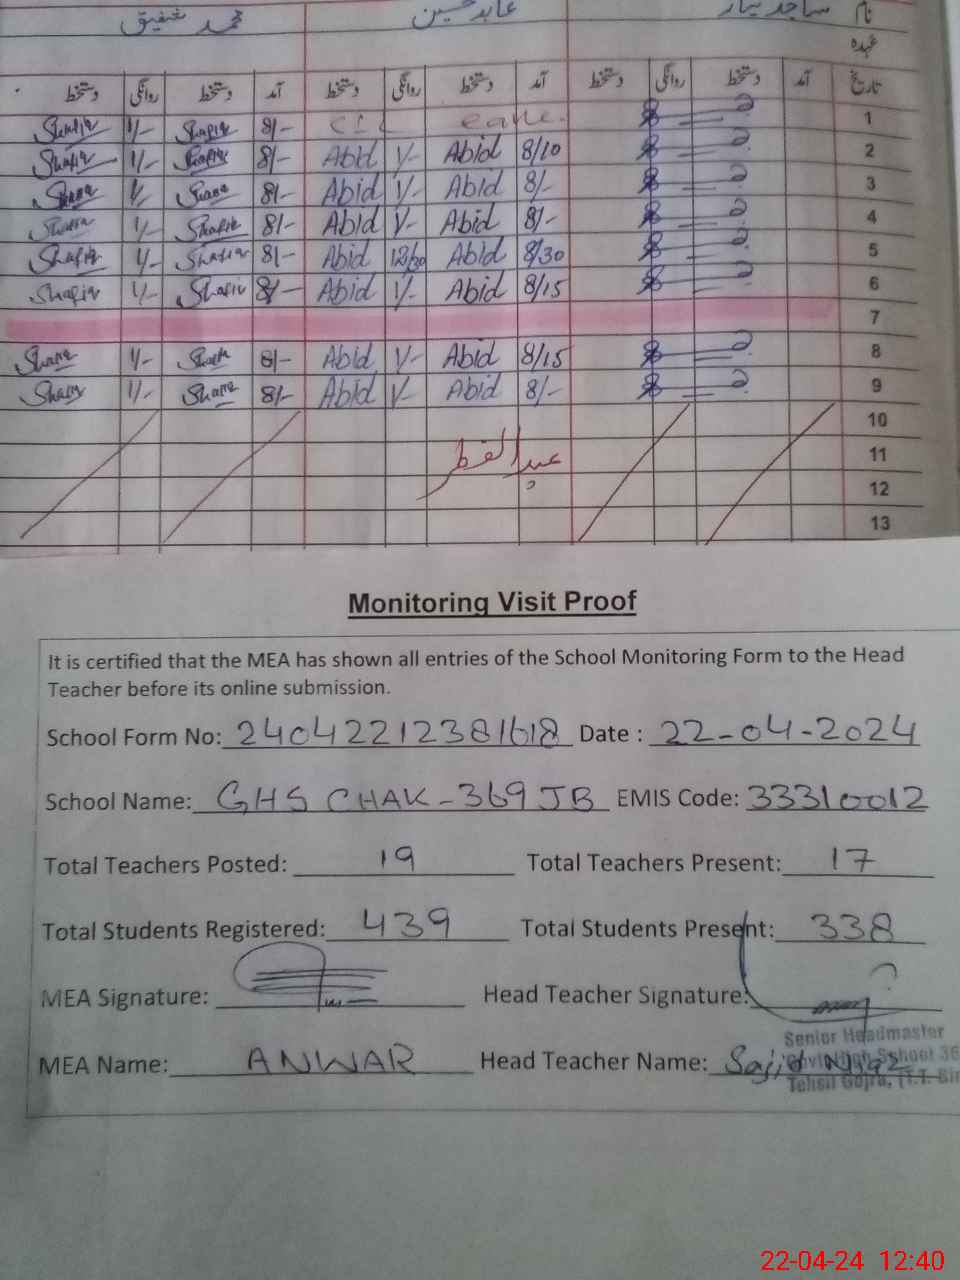 نام ساجد نیاز عابد حسین محمد شفیق
عہدہ
تاریخ آمد دستخط روانگی دستخط آمد دستخط روانگی دستخط آمد دستخط روانگی دستخط
1 8/- Shafiq 1/- Shafiq
2 8/10 Abid 1/- Abid 8/- Shafiq 1/- Shafiq
3 8/- Abid 1/- Abid 8/- 1/-
4 8/- Abid 1/- Abid 8/- Shafiq 1/-
5 8/30 Abid 12/30 Abid 8/- Shafiq 1/- Shafiq
6 8/15 Abid 1/- Abid 8/- Shafiq 1/- Shafiq
7
8 8/15 Abid 1/- Abid 8/- 1/-
9 8/- Abid 1/- Abid 8/- 1/-
10
11 عید الفطر
12
13
Monitoring Visit Proof
It is certified that the MEA has shown all entries of the School Monitoring Form to the Head
Teacher before its online submission.
School Form No: 24042212381618 Date : 22-04-2024
School Name: GHS CHAK-369 JB EMIS Code: 33310012
Total Teachers Posted: 19 Total Teachers Present: 17
Total Students Registered: 439 Total Students Present: 338
MEA Signature: Head Teacher Signature:
Senior Headmaster
MEA Name: ANWAR Head Teacher Name: Sajid Niaz
Govt High School 36
Tehsil Gojra, (T.T. Sin
22-04-24 12:40